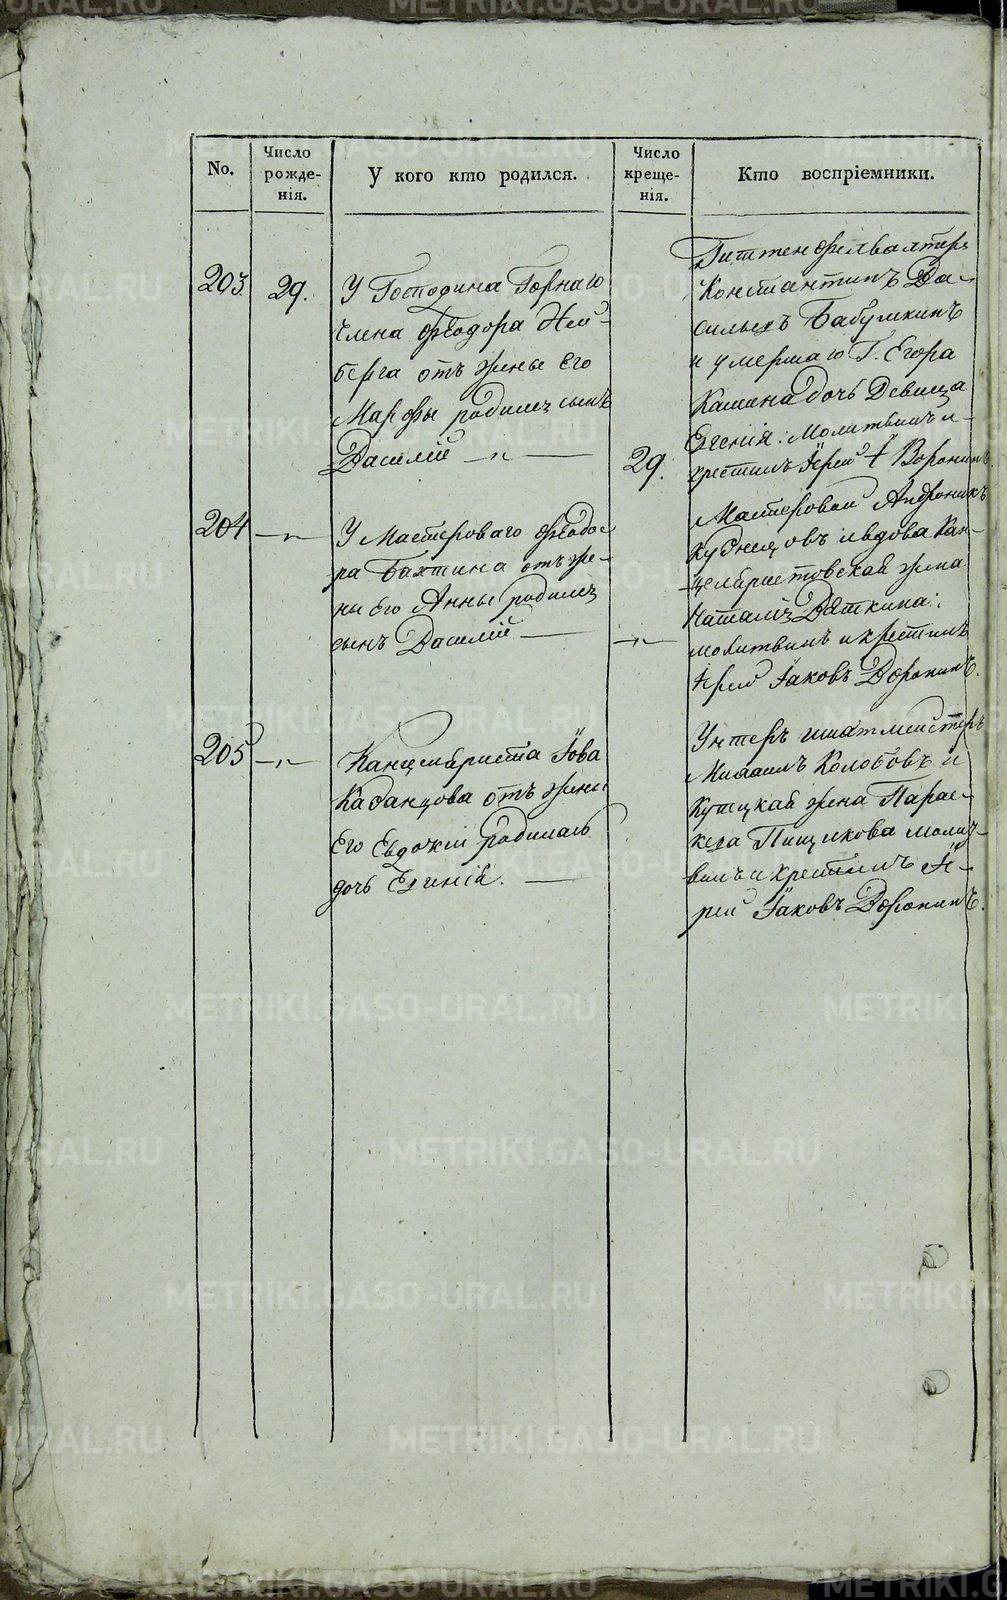 No.
Число
рожде-
нія.
У кого кто родился.
Число
креще-
нія.
Кто воспріемники.
203.
29.
У Господина Горнаго
члена Ѳеодора Ней-
берга отъ жены его
Марѳы родился сынъ
Василій —„—
29.
Гиттенфервалтеръ
Константинъ Ва-
сильевъ Бабушкинъ
и умершаго Г. Егора
дочь Девица
Евгенія: Молитвилъ и
крестилъ Іерей І Воронинъ
204
—„—
У Мастероваго Ѳеодо-
ра Бахтина отъ же-
ны его Анны родился
сынъ Василій —
—„—
Мастеровой Андроникъ
Кузнецовъ и вдова Кан-
целяристовская жена
Наталія Вяткина:
молитвилъ и крестилъ
Іерей Іаковъ Воронинъ.
205
—„—
Канцеляриста Іова
Казанцова отъ жены
Его Евдокіи родилась
дочь Евгенія. —
Унтеръ шихтмейстеръ
Михаилъ Колобовъ и
Купецкая жена Парас-
кева Пищикова молит-
вилъ и крестилъ Іе-
рей Іаковъ Воронинъ.
METRIKI.GASO-URAL.RU